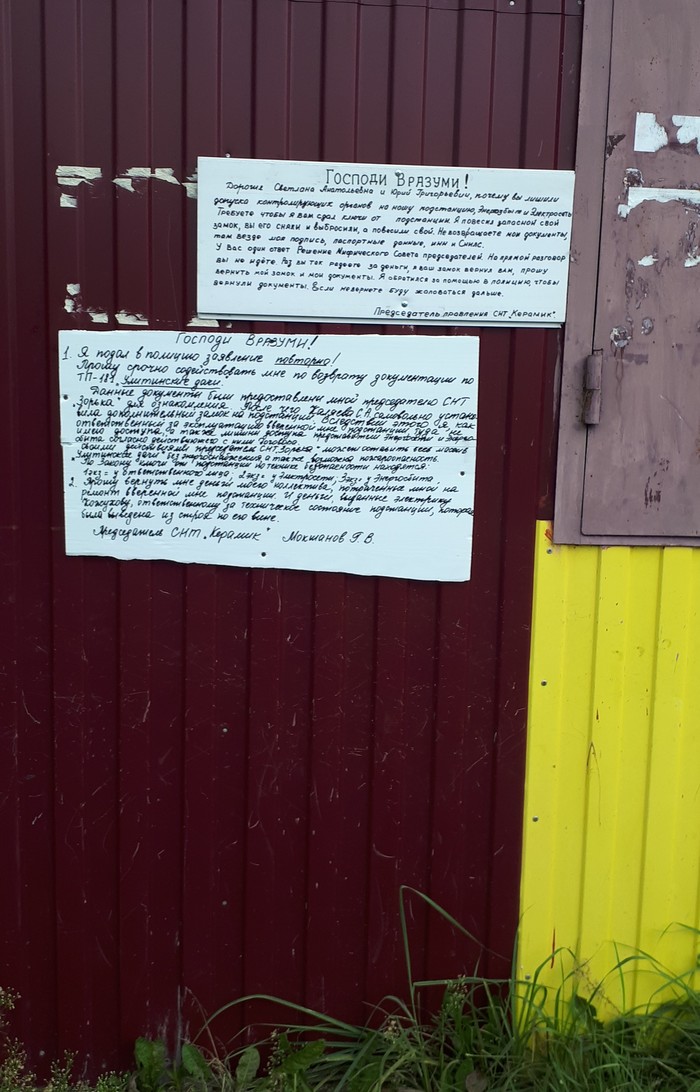 Господи Вразуми!
Дорогие Светлана Анатольевна и Юрий Григорьевич, почему вы лишили
допуска контролирующих органов на нашу подстанцию, Энергосбыт и Электросеть
Требуете чтобы я вам сдал ключи от подстанции. Я повесил запасной свой
замок, вы его сняли и выбросили, а повесили свой. Не возвращаете мои документы,
там везде моя подпись, паспортные данные, инн и Снилс.
У Вас один ответ Решение Мифического Совета председателей. На прямой разговор
вы не идёте. Раз вы так радеете за деньги, я ваш замок вернул вам, прошу
вернуть мой замок и мои документы. Я обратился за помощью в полицию, чтобы
вернули документы. Если не вернёте буду жаловаться дальше.
Председатель правления СНТ „Керамик".
Господи Вразуми!
1. Я подал в полицию заявление повторно!
Прошу срочно содействовать мне по возврату документации по
ТП-181 „Улитинские дачи".
Данные документы были предоставлены мной председателю СНТ
„Зорька" для ознакомления. После чего С.А. самовольно устано-
вила дополнительный замок на подстанцию. Вследствии этого я, как
ответственный за эксплуатацию вверенной мне подстанции, туда не
имею доступа, а также лишены доступа представители Энергосети и Энерго-
сбыта согласно действующего с ними договора.
Своими действиями председатель СНТ „Зорька" может оставить весь массив
„Улитинские дачи" без энергоснабжения а также возможна пожароопасность.
По Закону ключи от подстанции по технике безопасности находятся:
1экз = у ответственного лица; 2экз = у Электросети; 3экз = у Энергосбыта
2. Прошу вернуть мне деньги моего коллектива, потраченные мной на
ремонт вверенной мне подстанции. И деньги, выданные электрику
Кожухову, ответственному за техническое состояние подстанции, которая
была выведена из строя по его вине.
Председатель СНТ „Керамик" Мокшанов Г.В.